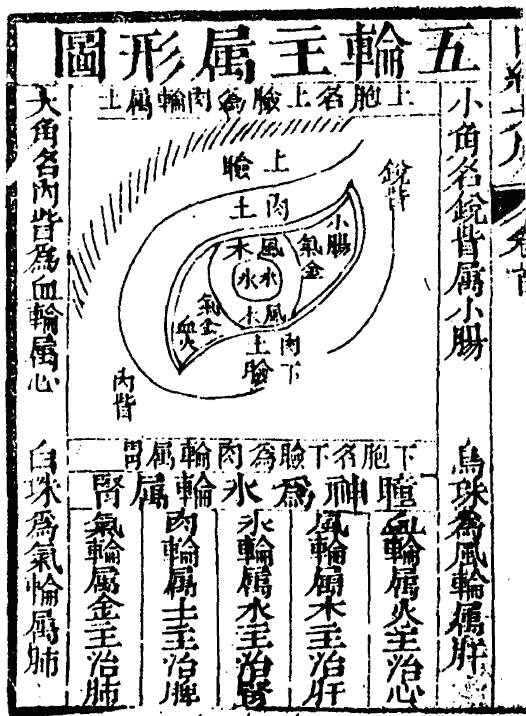 五輪主属形圖
小角名銳眥属小腸
烏珠為風輪属肝
上胞名上臉為肉輪属土
上臉
銳眥
肉土
小腸
氣金
風木
水水
風木
氣金
血火
肉下
土臉
內眥
下胞名下臉為肉輪属胃
瞳神為水輪属腎
血輪属火主治心
風輪属木主治肝
水輪属水主治腎
肉輪属土主治脾
氣輪属金主治肺
大角名內眥為血輪属心
白珠為氣輪属肺